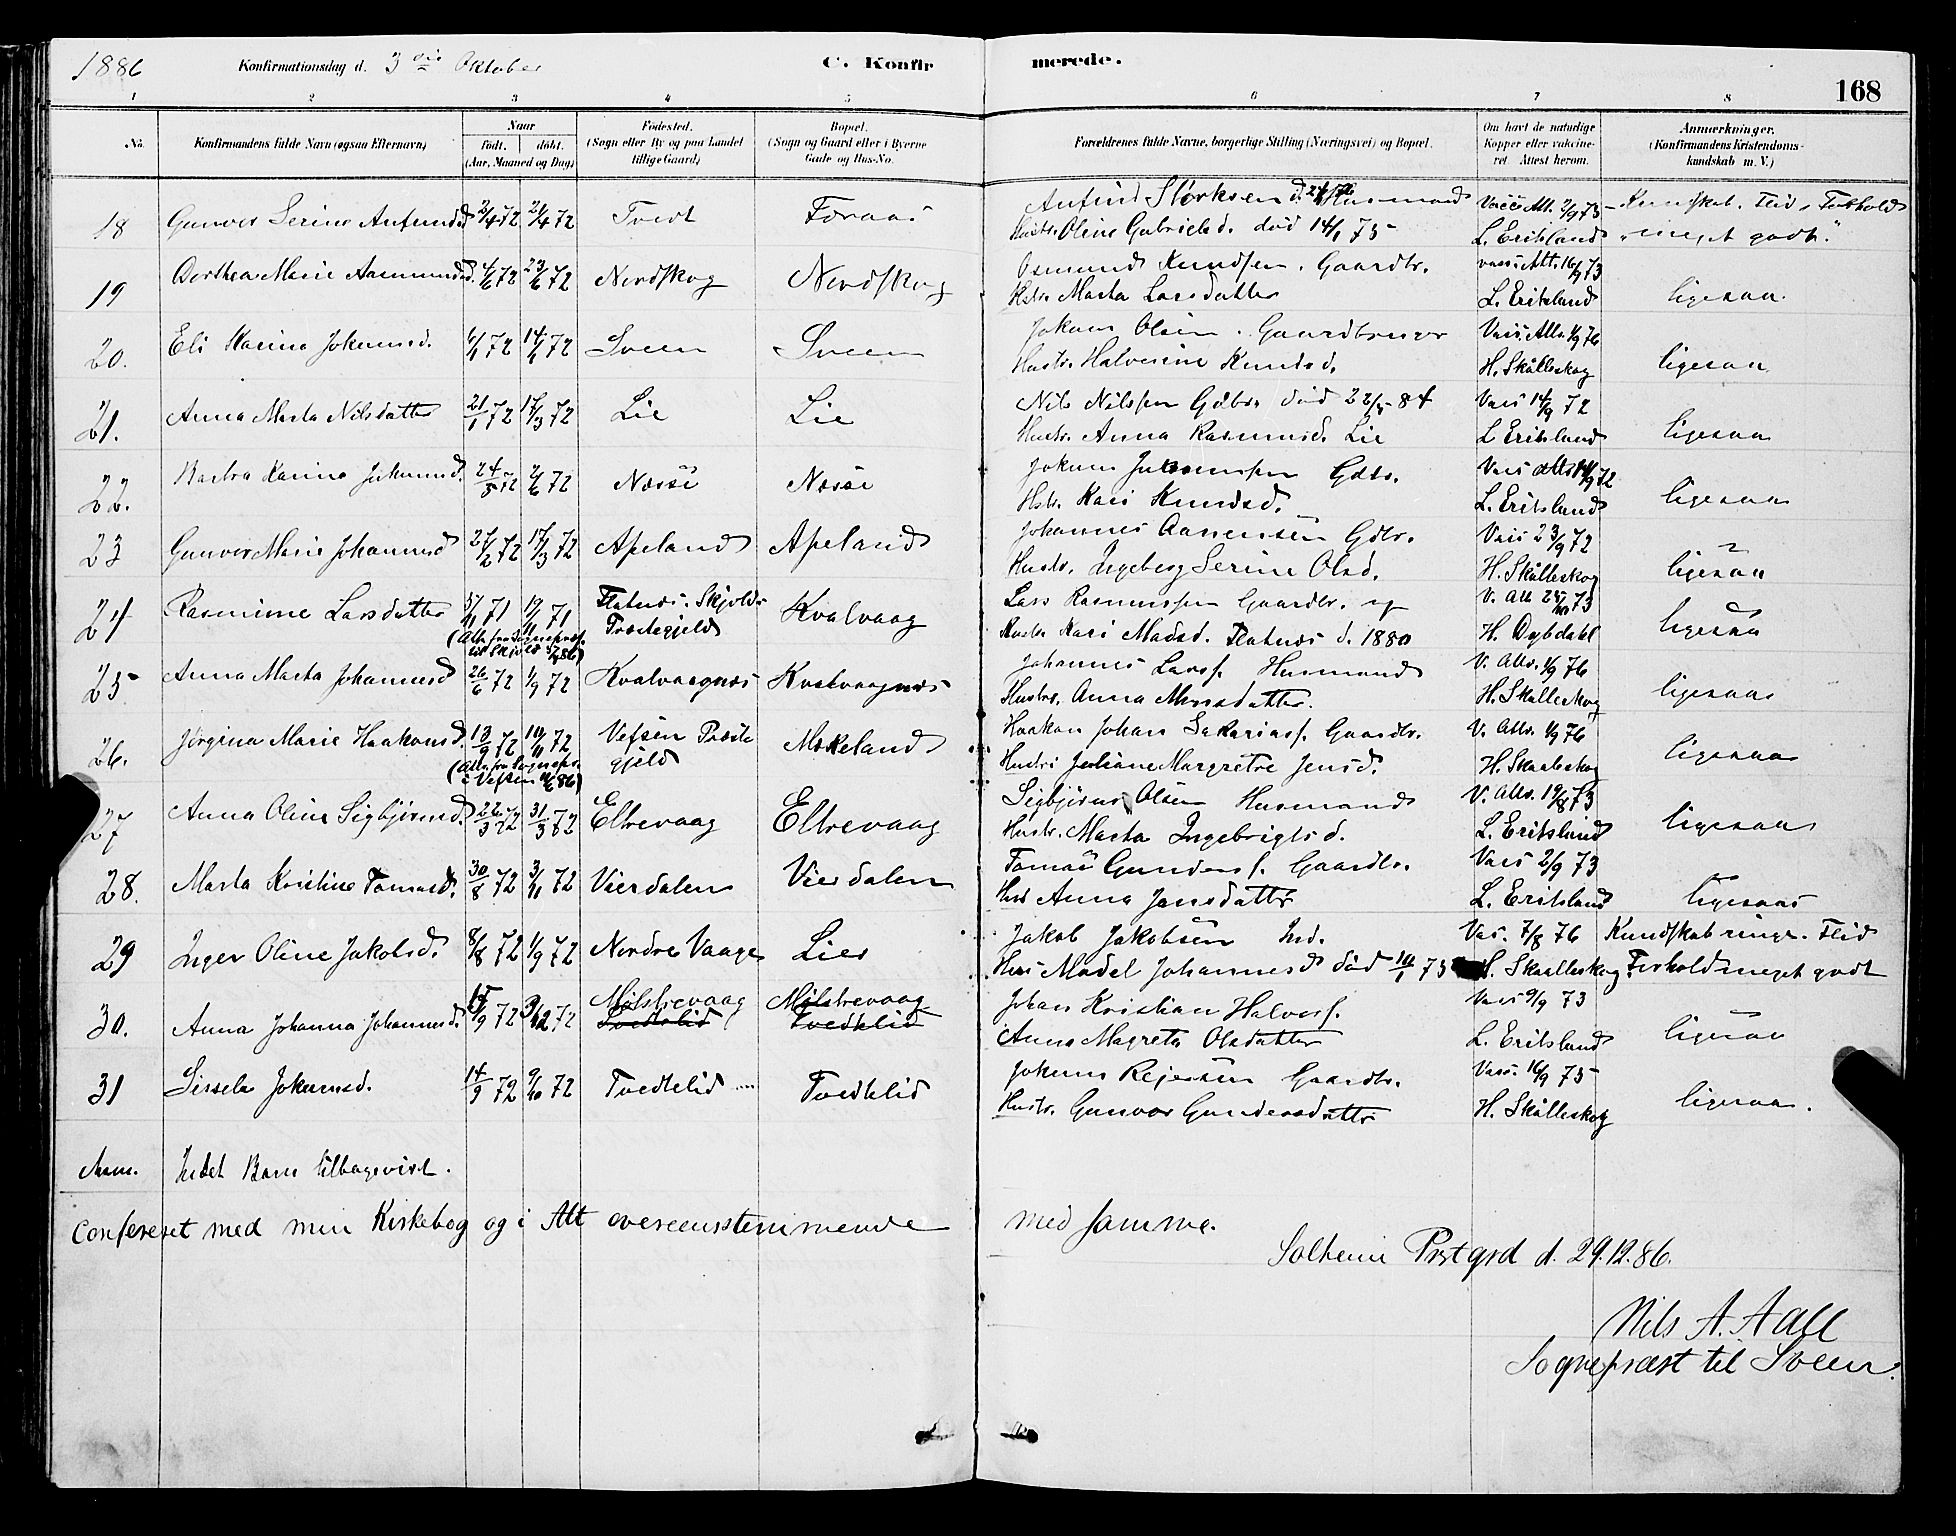 1886 Konfirmationsdag d. 3die Oktober C. Konfirmerede. 168
1 2 3 4 5 6 7 8
No. Konfirmandens fulde Navn (ogsaa Efternavn) Naar født. døbt. (Aar, Maaned og Dag) Fødested. (Sogn eller By og paa Landet tillige Gaard) Bopæl. (Sogn og Gaard eller i Byerne Gade og Hus-No. Forældrenes fulde Navne, borgerlige Stilling (Næringsvei) og Bopæl. Om havt de naturlige Kopper eller vaccineret. Attest herom. Anmærkninger. (Konfirmandens Kristendomskundskab m. V.)
18 Gunvor Serine Anfinnsd 2/4 72 21/4 72 Tvedt Foraas Anfind Størksen Husmand Vacc Att. 2/9 73 Kundskab, Flid, Forhold
Hustr. Oline Gabrielsd. død 14/1 75 L. Eritsland "meget godt."
19 Dorthea Marie Aasmundsd. 4/6 72 23/6 72 Nordskog Nordskog Osmund Knudsen. Gaardbr. vacc. Att. 16/9 73
Hstr. Marta Larsdatter L. Eritsland ligesaa.
20. Eli Karina Jokumsd. 1/6 72 14/6 72 Sveen Sveen Jokum Olsen. Gaardbruger Vacc. Att. 1/9 76
Hustr. Halvorine Knudsd. H. Skålleskog ligesaa
21. Anna Marta Nilsdatter 21/1 72 17/3 72 Lie Lie Nils Nilssen Gdbr. død 22/5 84 Vacc 14/9 72
Hustr. Anna Rasmusd. Lie L Eritsland ligesaa
22. Barbra Karina Jokumsd. 24/5 72 2/6 72 Nesse Nesse Jokum Gdbr. Vacc Att. 14/9 72
Hstr. Kari Knudsd. L. Eritsland ligesaa
23 Gunvor Marie Johannesd 27/2 72 17/3 72 Apeland Apeland Johannes Aanensen Gdbr. Vacc 23/9 72
Hustr. Ingeborg Serine Olsd. H. Skålleskog ligesaa
24 Rasmine Larsdatter 71 19/11 71 Flatnæs. Skjolds Præstegjeld Kvalvaag Lars Rasmussen Gaardbr. og V. Att 73
(Att. fra Sognepræst. til Skjold 86) Hustr. Kari Madsd. Flatnæs d. 1880 H. Dybdahl ligesaa
25 Anna Marta Johannesd 26/6 72 1/9 72 Kvalvaagnæs Kvalvaagnæs Johannes Larss. Husmand V. Att. 1/9 76
Hustr. Anna Monsdatter. H. Skålleskog ligesaa
26. Jørgina Marie Haakonsd. 13/9 72 10/11 72 Vefsen Præstegjeld Mækeland Haakon Johan Sakariass. Gaardbr. V. Att. 1/9 76
(Att. fra Sognepr. i Vefsen 86) Hustr. Juliane Margrethe Jensd. H. Skaaleskog ligesaa
27 Anna Oline Sigbjørnsd. 22/3 72 31/3 72 Eltrevaag Eltrevaag Sigbjørn Olsen Husmand V. Att. 19/8 73
Hustr. Marta Ingebrigtsd. L. Eritsland ligesaa
28. Marta Kristine Tomasd. 30/8 72 3/11 72 Vierdalen Vierdalen Tomas Gunders. Gaardbr. Vacc 2/9 73
Hus Anna Jansdatter L. Eritsland ligesaa
29 Inger Oline Jakobsd. 8/8 72 1/9 72 Nordre Vaage Lier Jakob Jakobsen Ind. Vac. 7/8 76 Kundskab ringe. Flid
Hus Madel Johannesd død 10/1 73 H. Skaalleskog. Forhold meget godt
30. Anna Johanna Johannesd. 15/9 72 3/12 72 Mølstrevaag Mølstrevaag Johan Kristian Halvors. Vacc 9/9 73
Tvedtelid Tvedtelid Anna Magreta Olsdatter L. Eritsland ligesaa
31 Sissela Jokumsd. 14/9 72 9/10 72 Tvedtelid Tvedtelid Jokum Rejersen Gaardbr. Vacc. 16/9 75
Hustr. Gunvor Gundersdatter H. Skålleskog ligesaa.
Anm. Intet Barn tilbagevist.
Confereret med min Kirkebog og i Alt overeensstemmende med samme.
Solheim Prstgrd d. 29.12.86.
Nils A. Aall
Sognepræst til Sveen.